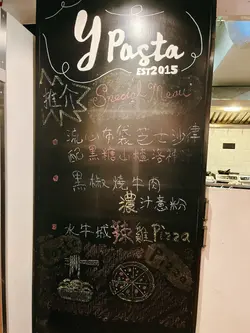 y Pasta
EST 2015
推介 Special Menu
流心布袋芝士沙津
黑糖山楂洛神
黑椒燒牛肉
濃汁意粉
水牛城辣雞Pizza